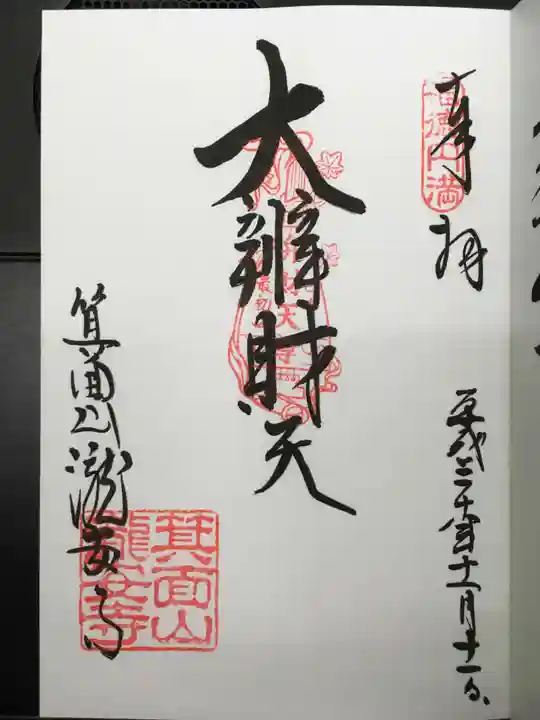 奉拝
福徳円満
平成三十年十一月十一日
大辨財天
財天
箕面山瀧安寺
箕面山
瀧安寺